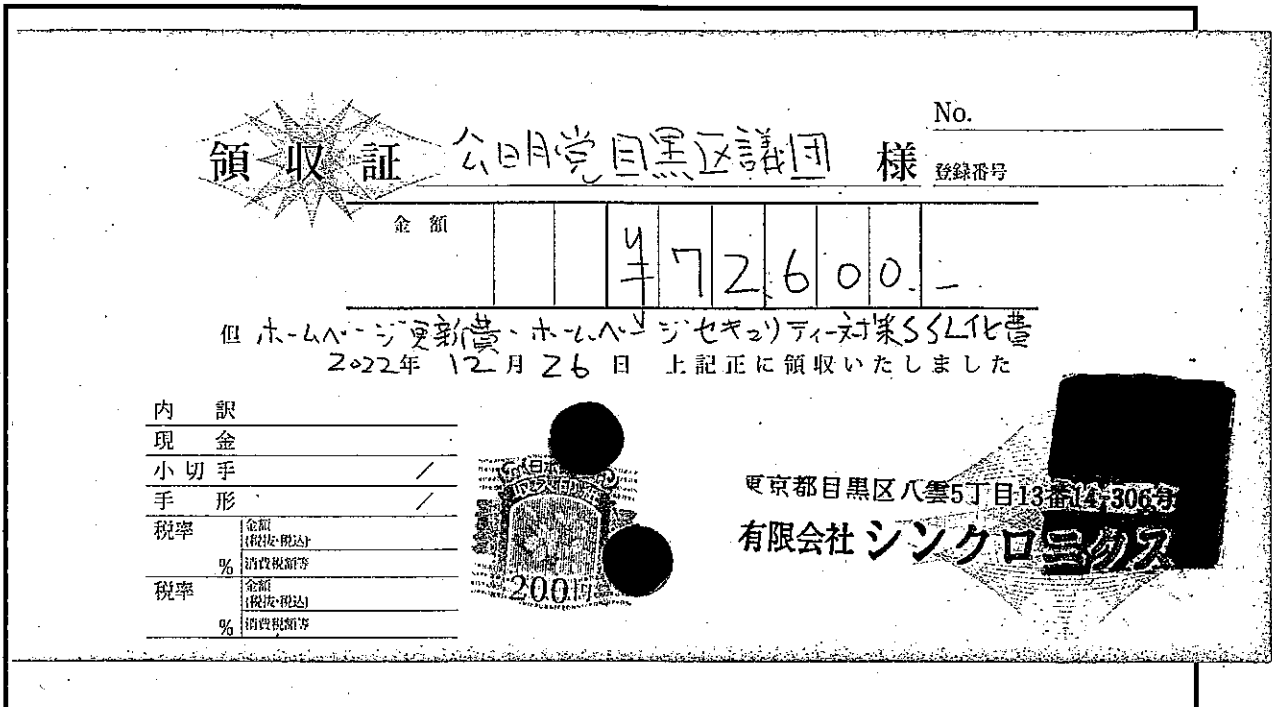 No.
領収証 公明党目黒区議団 様
登録番号
金額 ¥72,600.-
但 ホームページ更新費・ホームページセキュリティー対策SSL化費
2022年 12月 26日 上記正に領収いたしました
内訳
現金
小切手 /
手形 /
税率 金額(税抜・税込)
% 消費税額等
税率 金額(税抜・税込)
% 消費税額等
200円
東京都目黒区八雲5丁目13番14-306号
有限会社 シンクロニクス